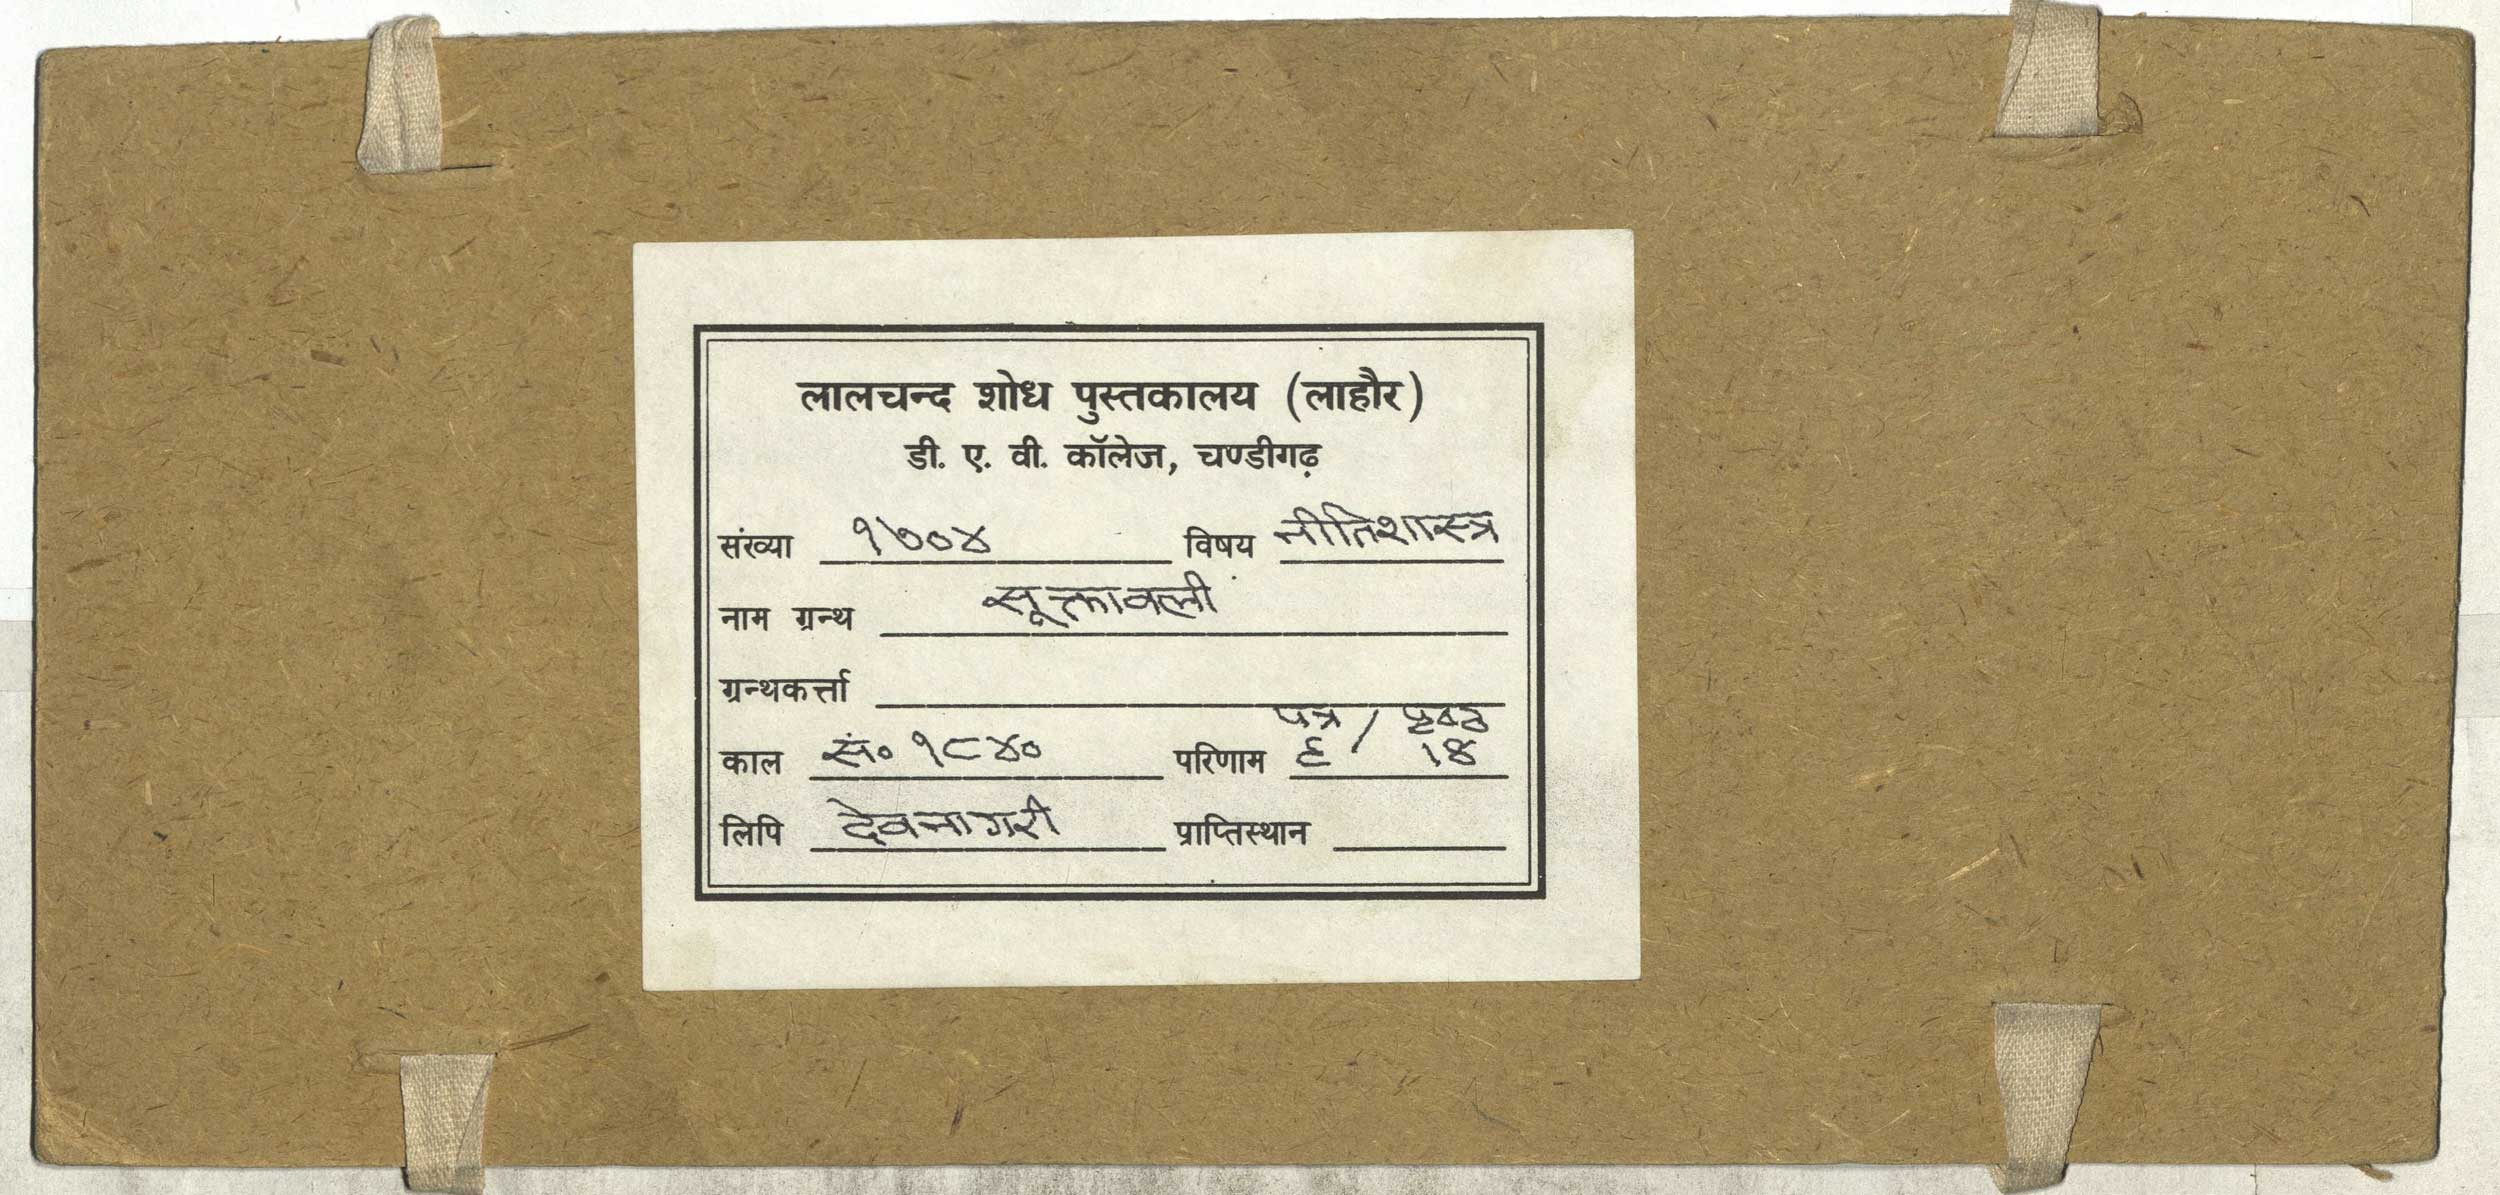 लालचन्द शोध पुस्तकालय (लाहौर)
डी. ए. वी. कॉलेज, चण्डीगढ़
संख्या १७०४ विषय नीतिशास्त्र
नाम ग्रन्थ सूक्तावली
ग्रन्थकर्त्ता
पत्र / पृष्ठ
काल सं० १८४० परिणाम ६ / १४
लिपि देवनागरी प्राप्तिस्थान